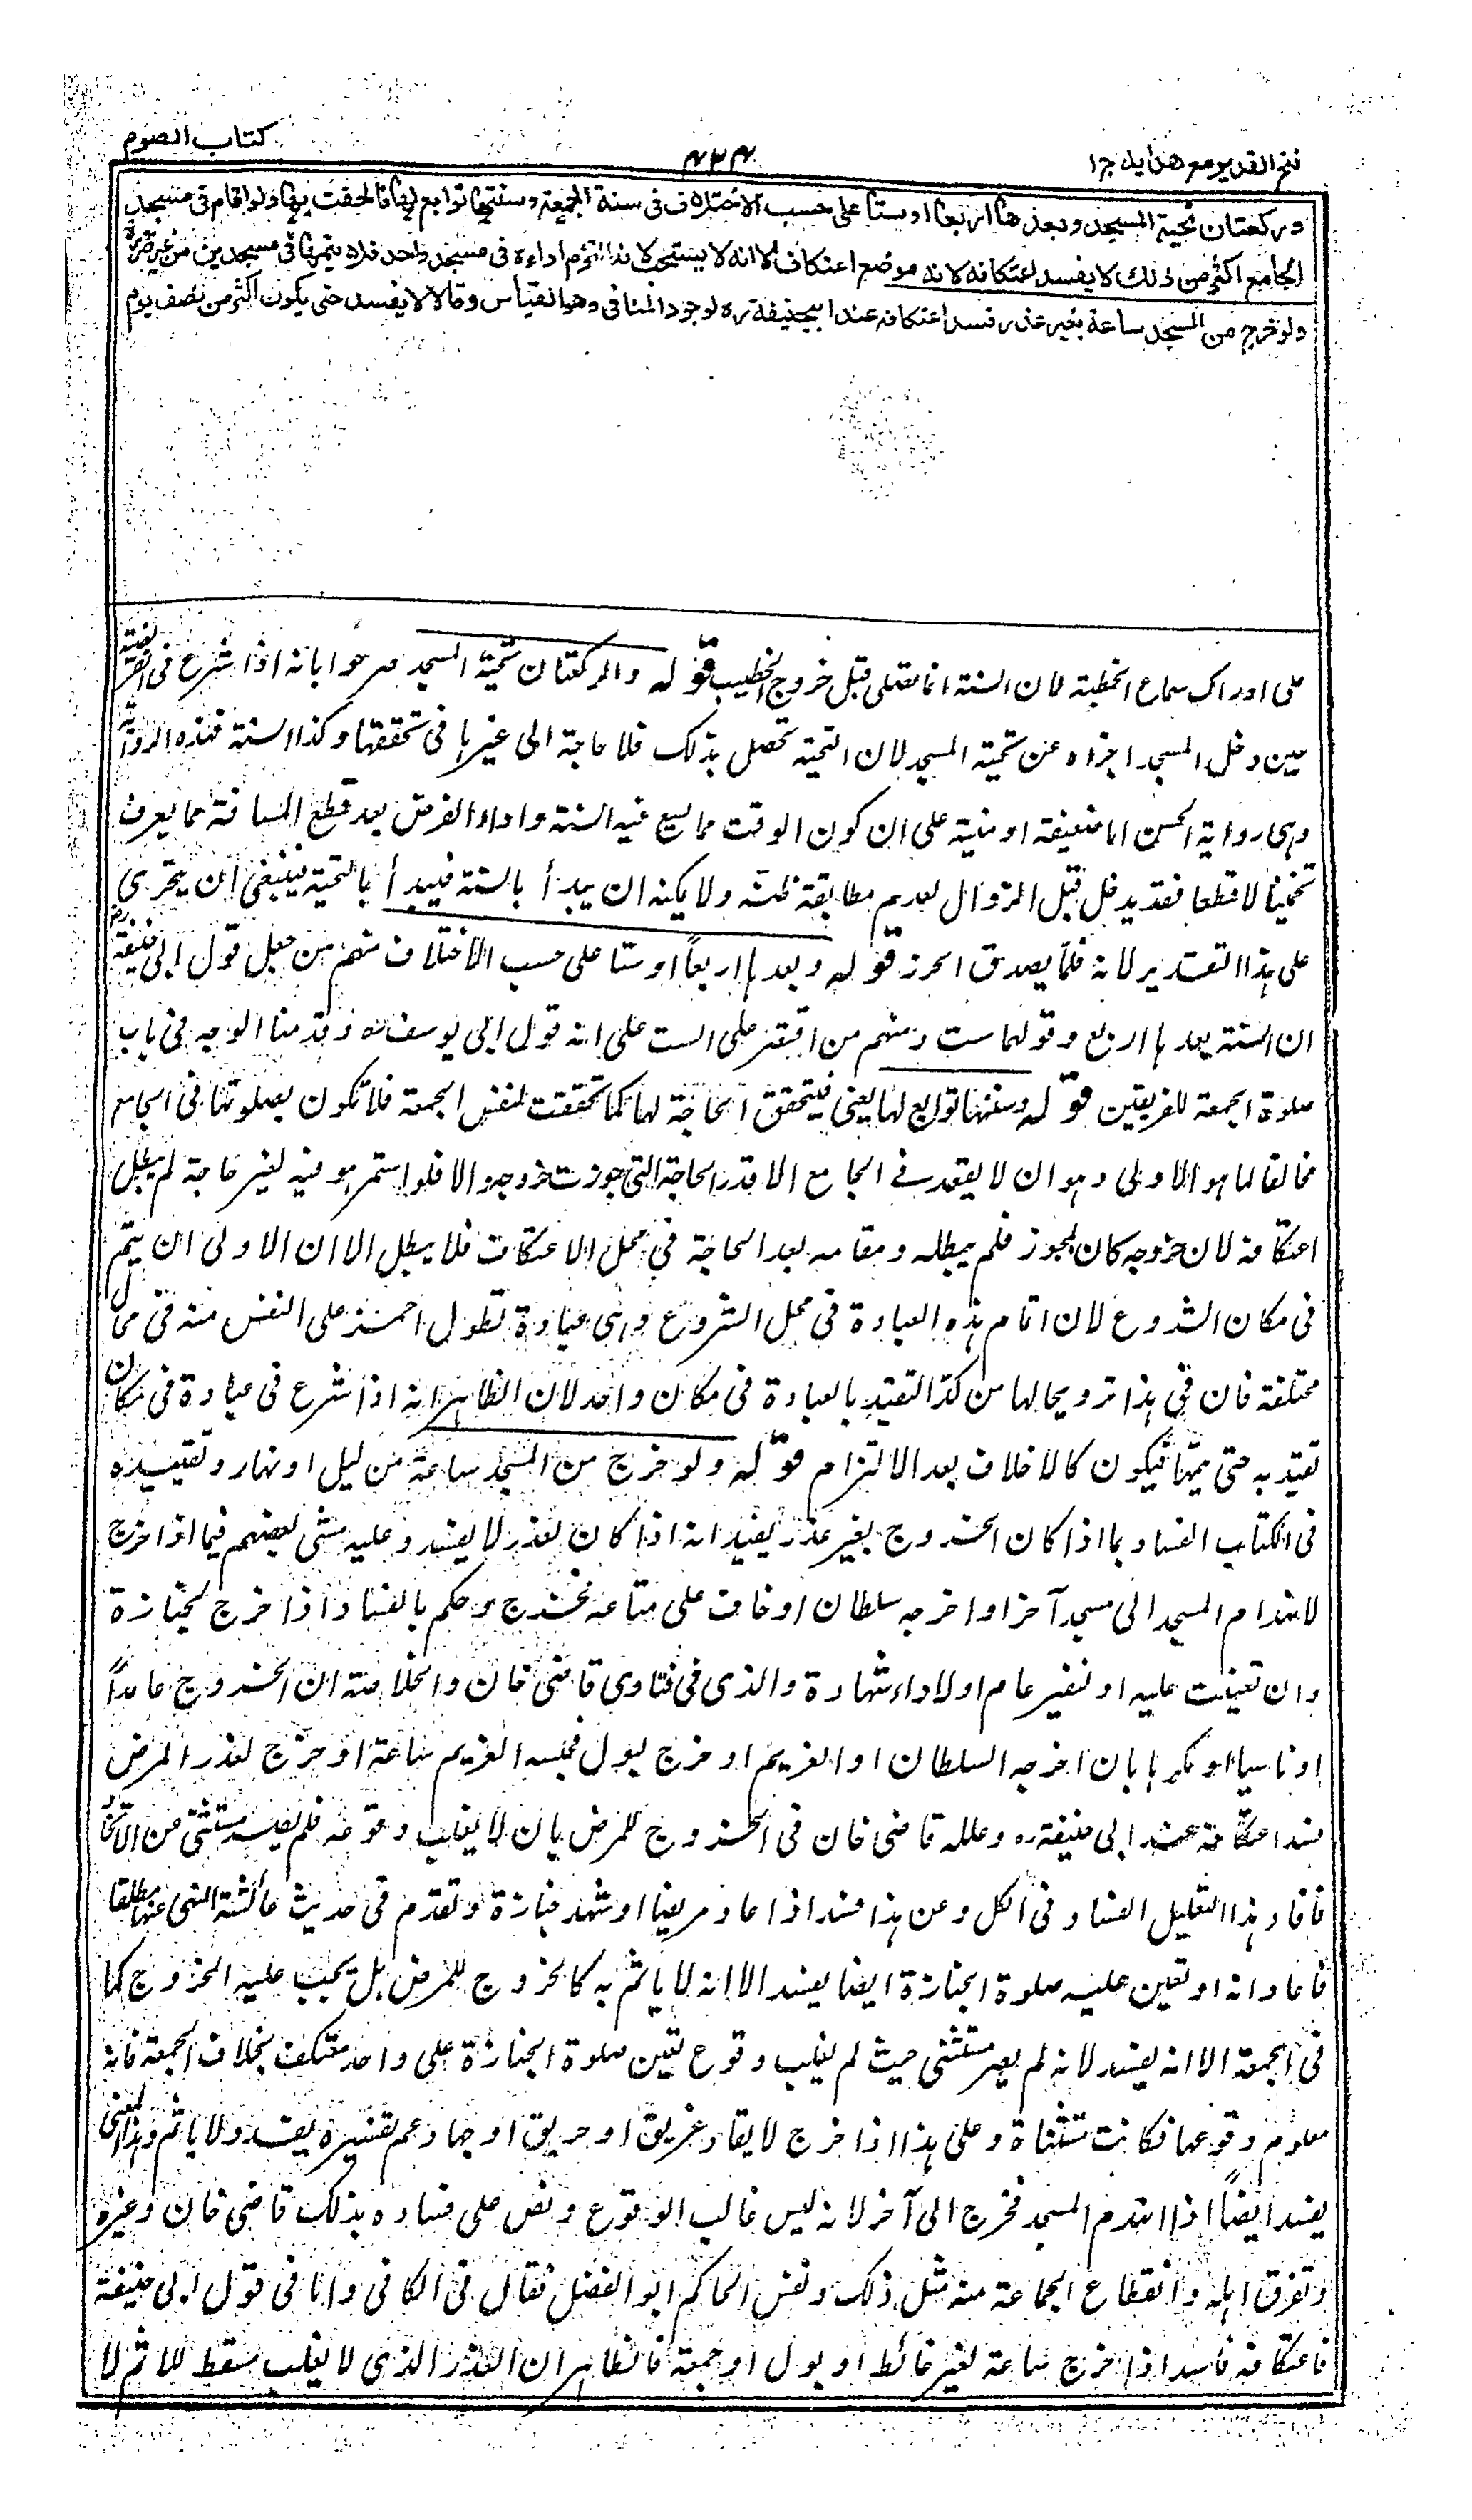 فتح القدير مع هدايه ج ا
۴۳۴
كتاب الصوم
وركعتان تحية المسجد وبعدها اربعا اوستا على حسب الاختلاف فى سنة الجمعة وسنتها توابع لها فالحقت بها ولو اقام فى مسجد
الجامع اكثر من ذلك لا يفسد اعتكافه لانه موضع اعتكاف الا انه لا يستحب لانه التزم اداءه فى مسجد واحد فلا يتمها فى مسجدين من غير ضرورة
ولو خرج من المسجد ساعة بغير عذر فسد اعتكافه عند ابيحنيفة ره لوجود المنافى وهو القياس وقالا لا يفسد حتى يكون اكثر من نصف يوم
على ادراك سماع الخطبة لان السنة انما تصلى قبل خروج الخطيب قوله والركعتان تحية المسجد صرحوا بانه اذا شرع فى الفريضة
حين دخل المسجد اجزاه عن تحية المسجد لان التحية تحصل بذلك فلا حاجة الى غيرها فى تحققها وكذا السنة فهذه الرواية
وهى رواية الحسن اما ضعيفة او مبنية على ان كون الوقت مما يسع فيه السنة واداء الفرض بعد قطع المسافة مما يعرف
تخمينا لا قطعا فقد يدخل قبل الزوال لعدم مطابقة ظنه ولا يمكنه ان يبدأ بالسنة فيبدأ بالتحية فينبغى ان يتحرى
على هذا التقدير لانه قلما يصدق الحرز قوله وبعدها اربعاً اوستا على حسب الاختلاف منهم من جعل قول ابى حنيفة رح
ان السنة بعدها اربع وقولهما ست ومنهم من اقتصر على الست على انه قول ابى يوسف ره وقدمنا الوجه فى باب
صلوة الجمعة للفريقين قوله وسنتها توابع لها يعنى فيتحقق الحاجة لها كما تحققت لنفس الجمعة فلا تكون بصلوتها فى الجامع
مخالفا لما هو الاولى وهو ان لا يقعد فى الجامع الا قدر الحاجة التى جوزت خروجه والا فلو استمر هو فيه لغير حاجة لم يبطل
اعتكافه لان خروجه كان لمجوز فلم يبطله ومقامه بعد الحاجة فى محل الاعتكاف فلا يبطل الا ان الاولى ان يتم
فى مكان الشروع لان اتمام هذه العبادة فى محل الشروع وهى عبادة تطول احمز على النفس منه فى محال
مختلفة فان فى هذا ترويحا لها من كد التقيد بالعبادة فى مكان واحد لان الظاهر انه اذا شرع فى عبادة فى مكان
تقيد به حتى يتمها فيكون كالاخلاف بعد الالتزام قوله ولو خرج من المسجد ساعة من ليل او نهار وتقييده
فى الكتاب الفساد بما اذا كان الخروج بغير عذر يفيد انه اذا كان لعذر لا يفسد وعليه مشى بعضهم فيما اذا خرج
لانهدام المسجد الى مسجد آخر او اخرجه سلطان او خاف على متاعه فخرج وحكم بالفساد اذا خرج لجنازة
وان تعينت عليه او لنفير عام او لاداء شهادة والذى فى فتاوى قاضى خان والخلاصة ان الخروج عامداً
او ناسيا او مكرها بان اخرجه السلطان او الغريم او خرج لبول فحبسه الغريم ساعة او خرج لعذر المرض
فسد اعتكافه عند ابى حنيفة ره وعلله قاضى خان فى الخروج للمرض بان لا يغلب وقوعه فلم يصر مستثنى من الايجاب
فافاد هذا التعليل الفساد فى الكل وعن هذا فسد اذا عاد مريضا او شهد جنازة وتقدم فى حديث عائشة النهى عنها مطلقا
فافاد انه لو تعين عليه صلوة الجنازة ايضا يفسد الا انه لا ياثم به كالخروج للمرض بل يجب عليه الخروج كما
فى الجمعة الا انه يفسد لانه لم يصر مستثنى حيث لم يغلب وقوع تعين صلوة الجنازة على واحد معتكف بخلاف الجمعة فانه
معلوم وقوعها فكانت مستثناة وعلى هذا اذا خرج لانقاذ غريق او حريق او جهاد عم نفيره يفسد ولا ياثم وهذا المعنى
يفسد ايضاً اذا انهدم المسجد فخرج الى آخر لانه ليس غالب الوقوع ونص على فساده بذلك قاضى خان وغيره
وتفرق اهله وانقطاع الجماعة منه مثل ذلك ونص الحاكم ابو الفضل فقال فى الكافى واما فى قول ابى حنيفة
فاعتكافه فاسد اذا خرج ساعة لغير غائط او بول او جمعة فالظاهر ان العذر الذى لا يغلب مسقط للاثم لا